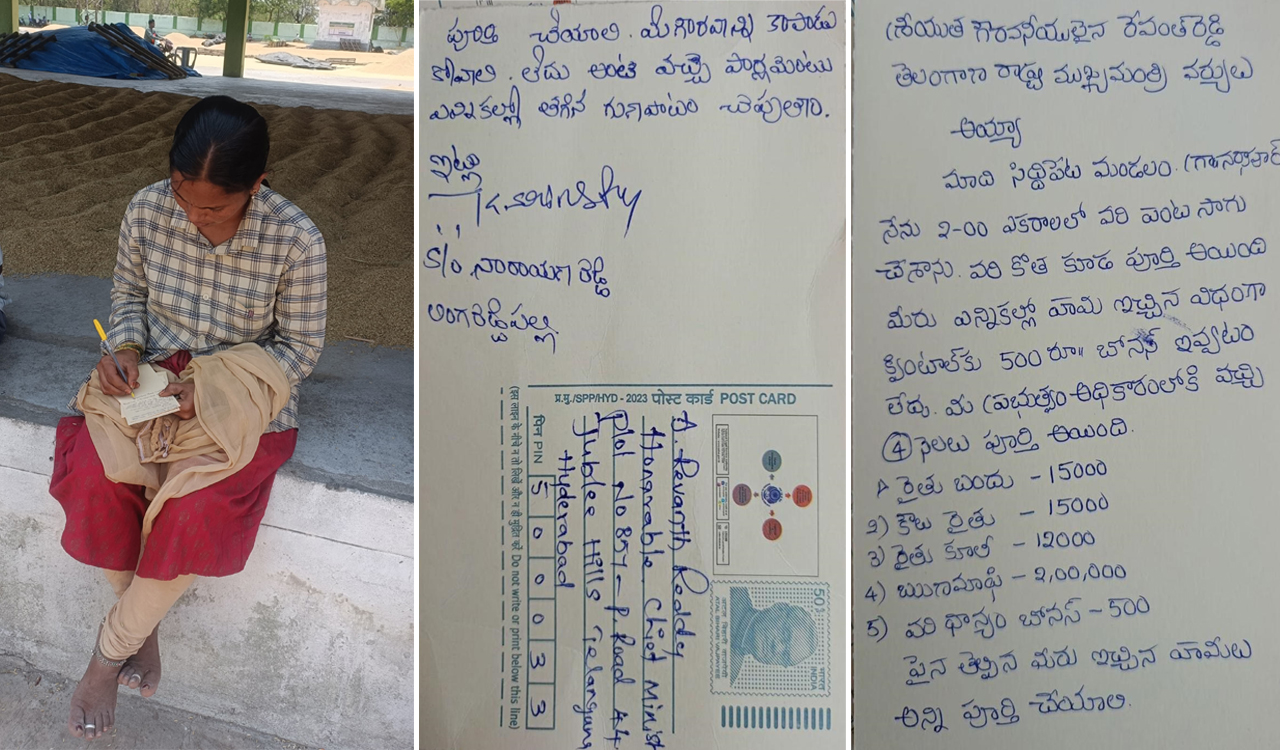 పూర్తి చేయాలి. మీ గౌరవాన్ని కాపాడు
కోవాలి. లేదు అంటే వచ్చే పార్లమెంటు
ఎన్నికల్లో తగిన గుణపాటం చెపుతాం.
ఇట్లు
S/o నారాయణ రెడ్డి
లింగారెడ్డిపల్లి.
प्र.मु./SPP/HYD - 2023 पोस्ट कार्ड POST CARD
A. Revanth Reddy
Honarable Chief Minist
Plot No 857 - P. Road 44
Juble Hills Telangana
Hyderabad
पिन PIN 5 0 0 0 3 3
(इस लाइन के नीचे न तो लिखें और न ही मुद्रित करें Do not write or print below this line)
अटल बिहारी वाजपेयी
ATAL BIHARI VAJPAYEE
50
भारत INDIA
శ్రీయుత గౌరవనీయులైన రేవంత్ రెడ్డి
తెలంగాణ రాష్ట్ర ముఖ్యమంత్రి వర్యులు
అయ్యా
మాది సిద్దిపేట మండలం.
నేను 2-00 ఎకరాలలో వరి పంట సాగు
చేశాను. వరి కోత కూడ పూర్తి అయింది
మీరు ఎన్నికల్లో హామి ఇచ్చిన విధంగా
క్వింటాల్‌కు 500 రూ॥ బోనస్ ఇవ్వటం
లేదు. మీ ప్రభుత్వం అధికారంలోకి వచ్చి
④ నెలలు పూర్తి అయింది.
1) రైతు బందు - 15000
2) కౌలు రైతు - 15000
3) రైతు కూలీ - 12000
4) ఋణమాఫి - 2,00,000
5) వరి ధాన్యం బోనస్ - 500
పైన తెల్పిన మీరు ఇచ్చిన హామీలు
అన్ని పూర్తి చేయాలి.